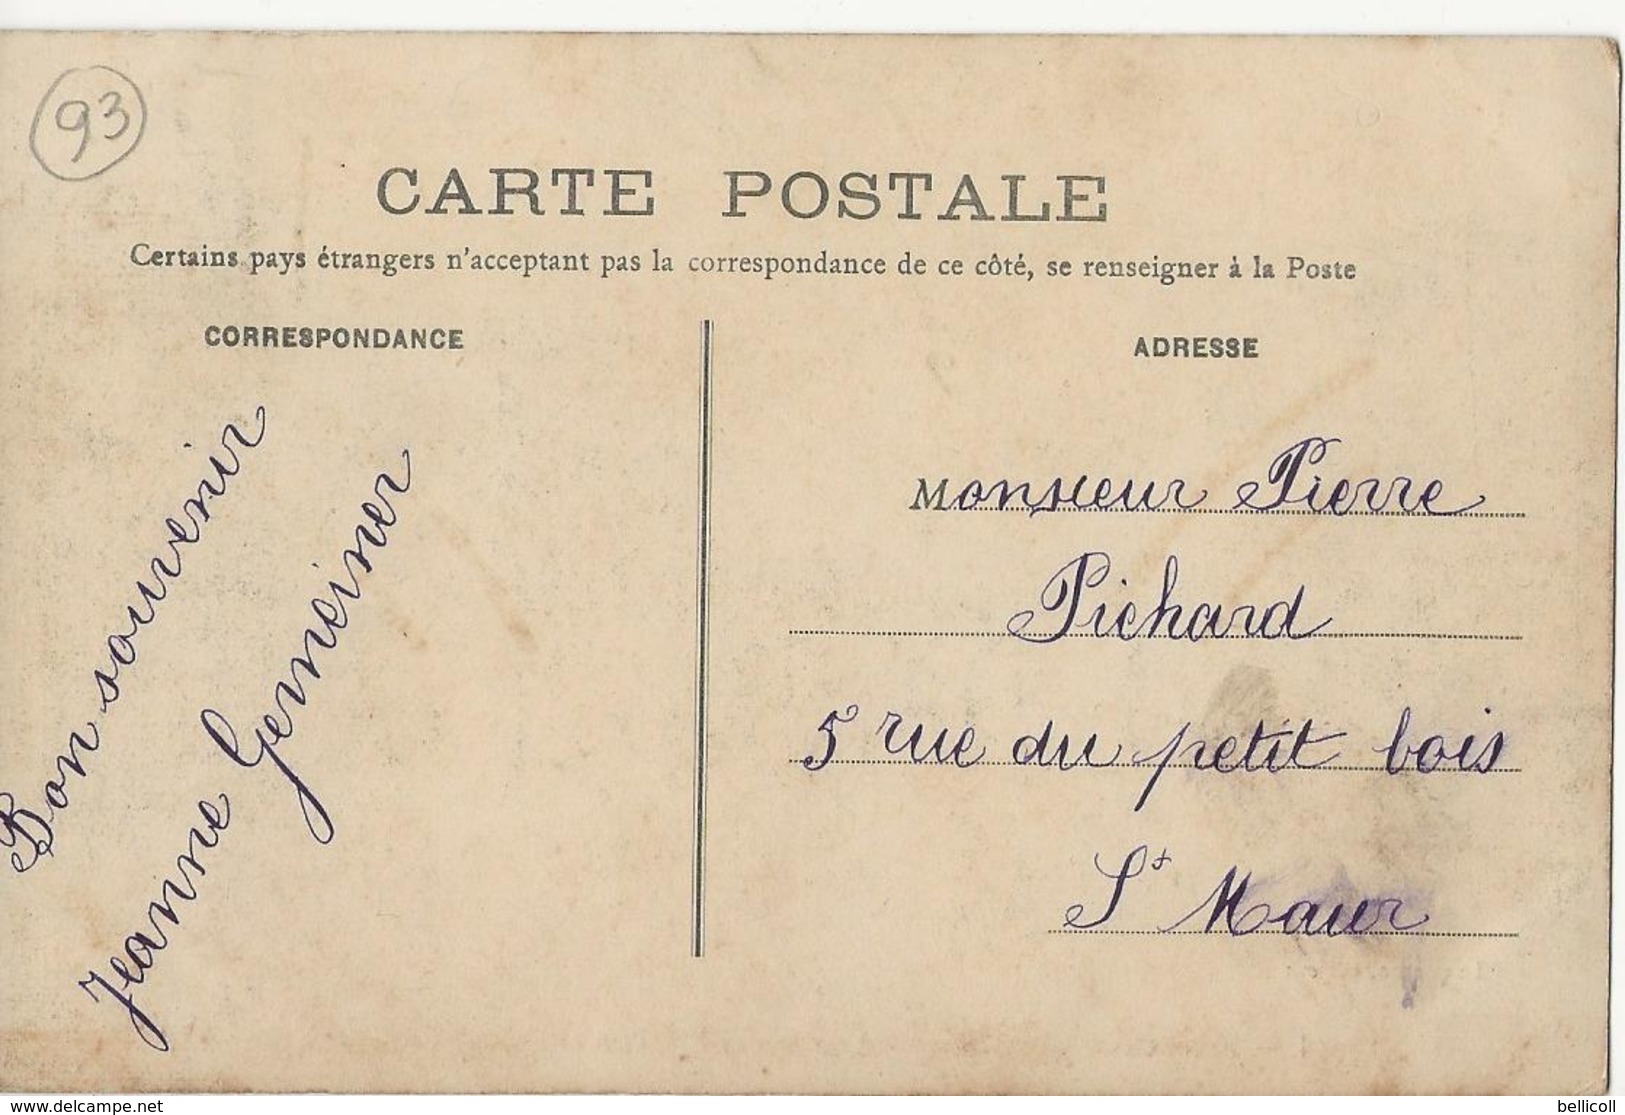 93
CARTE POSTALE
Certains pays étrangers n'acceptant pas la correspondance de ce côté, se renseigner à la Poste
CORRESPONDANCE
Bon souvenir
Jeanne Gemeiner
ADRESSE
Monsieur Pierre
Pichard
5 rue du petit bois
St Maur
www.delcampe.net
bellicoll